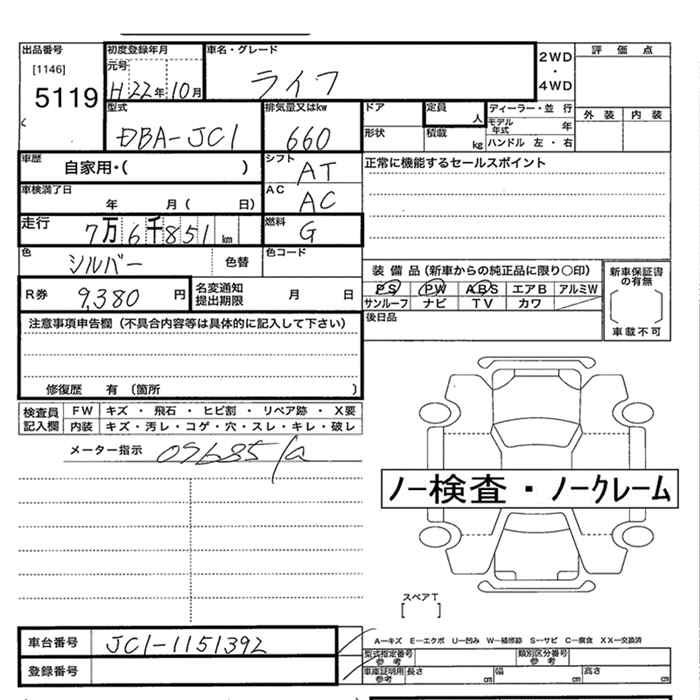 出品番号 初度登録年月 車名・グレード 評価点
[1146] 元号 2WD
5119 H22年10月 ライフ ・
4WD
型式 排気量又はkw ドア 定員 人 ディーラー・並行 外装 内装
DBA-JC1 660 形状 積載 kg モデル年式 年
ハンドル 左・右
車歴 自家用・( ) シフト AT 正常に機能するセールスポイント
車検満了日 年 月( 日) AC AC
走行 7万6千851km 燃料 G
色 シルバー 色替 色コード
装備品(新車からの純正品に限り○印) 新車保証書の有無
R券 9,380円 名変通知提出期限 月 日 PS PW ABS エアB アルミW
サンルーフ ナビ TV カワ
注意事項申告欄(不具合内容等は具体的に記入して下さい) 後日品 車載不可
修復歴 有(箇所 )
検査員記入欄 FW キズ・飛石・ヒビ割・リペア跡・X要
内装 キズ・汚レ・コゲ・穴・スレ・キレ・破レ
メーター指示
ノー検査・ノークレーム
スペアT
[ ]
車台番号 JC1-1151392 A—キズ E—エクボ U—凹み W—補修跡 S—サビ C—腐食 XX—交換済
型式指定番号 参考 類別区分番号 参考
登録番号 車庫証明用 参考 長さ cm 幅 cm 高さ cm